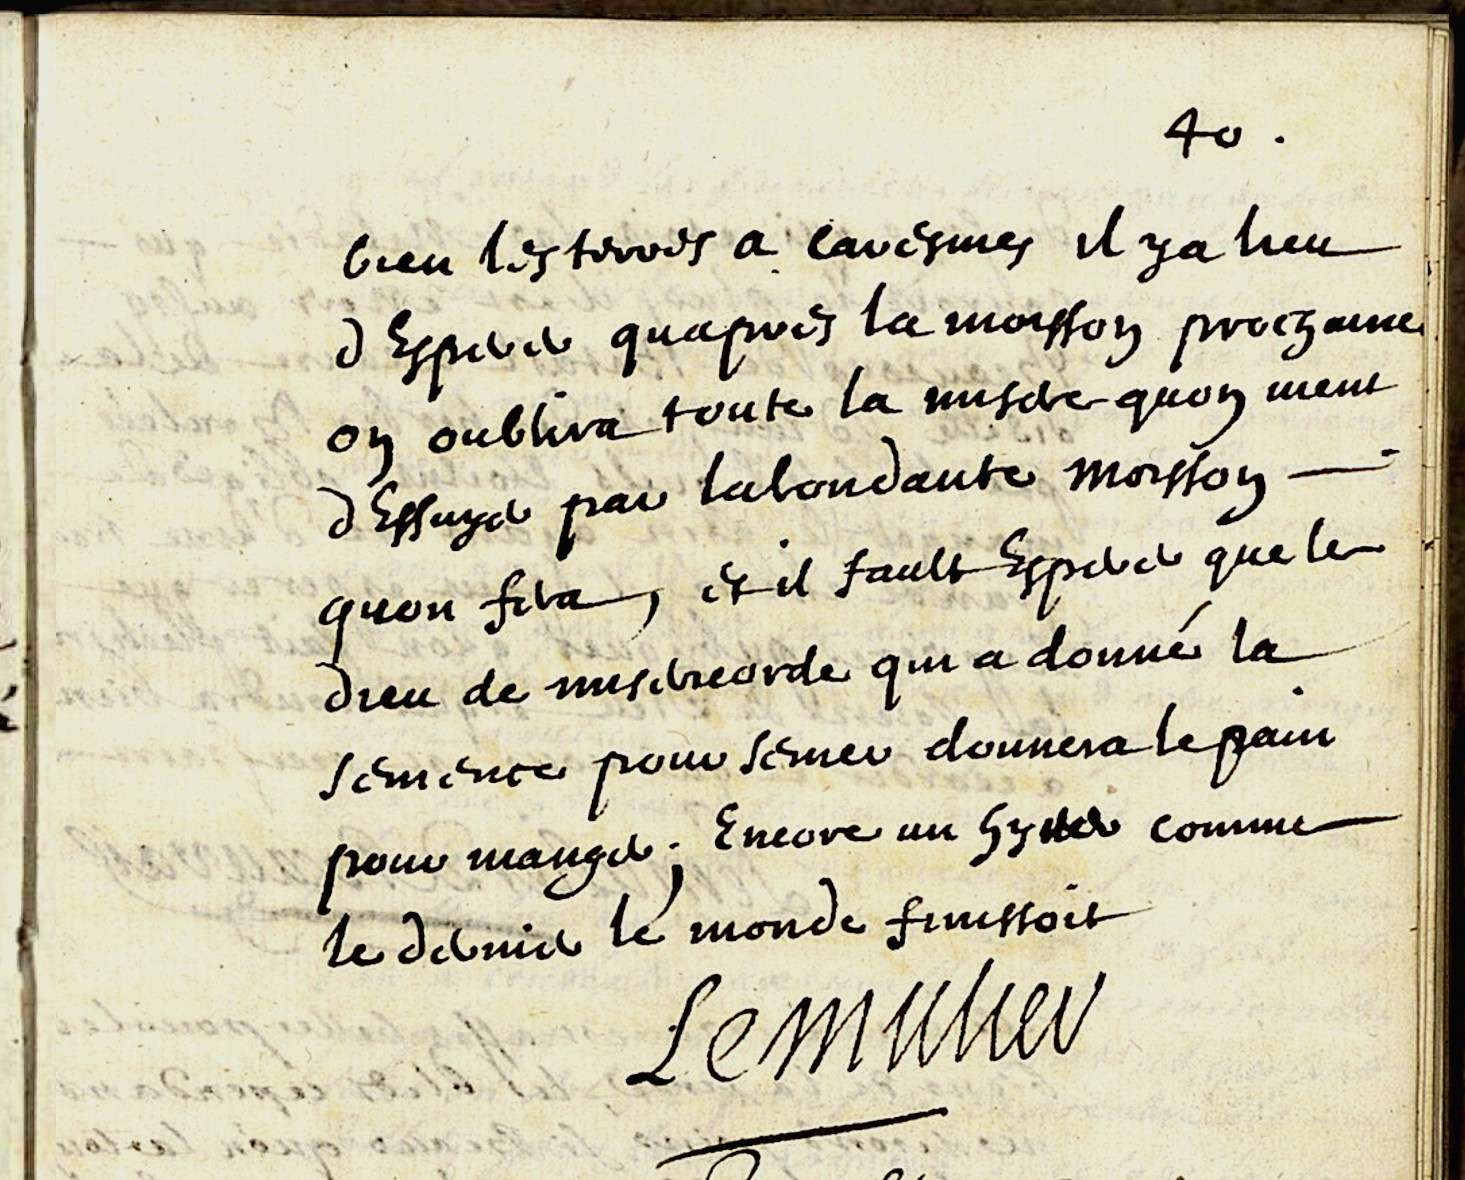 40.
bien les terres a caresmes il y a lieu
d Esperer quapres la moisson prochaine
on oublira toute la misere quon vient
d Essuyer par labondante moisson
quon fera, et il fault Esperer que le
dieu de misericorde qui a donné la
semence pour semer donnera le pain
pour manger; Encore un hyver comme
le dernier le monde finissoit
Lemulier